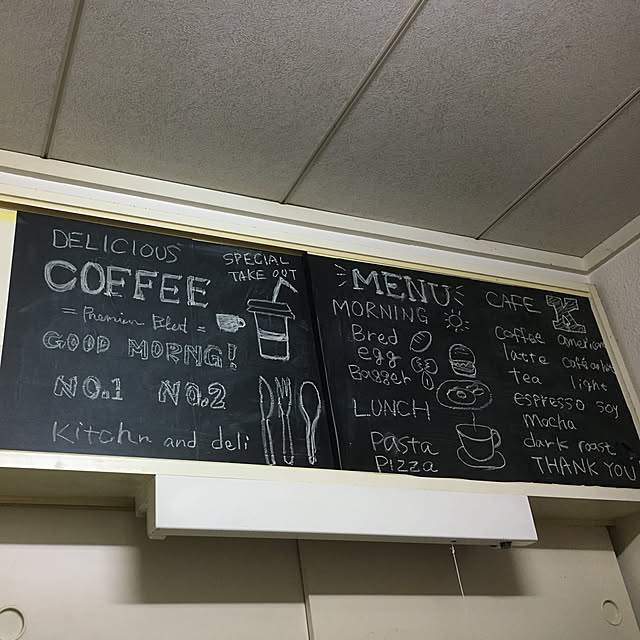 DELICIOUS
COFFEE
SPECIAL
TAKE OUT
= Premium Bled =
GOOD MORNG!
NO.1 NO.2
Kitchn and deli
MENU
MORNING
Bred
egg
LUNCH
Pasta
Pizza
CAFE
Coffee american
latte
tea light
espresso soy
mocha
dark roast
THANK YOU